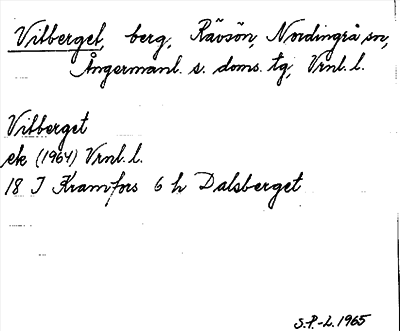 Vitberget, berg, Rävsön, Nordingrå sn,
Ångermanl. s. doms. tg, Vrnl. l.
Vitberget
ek (1964) Vrnl. l.
18 I Kramfors 6 h Dalsberget
S.P.-L. 1965